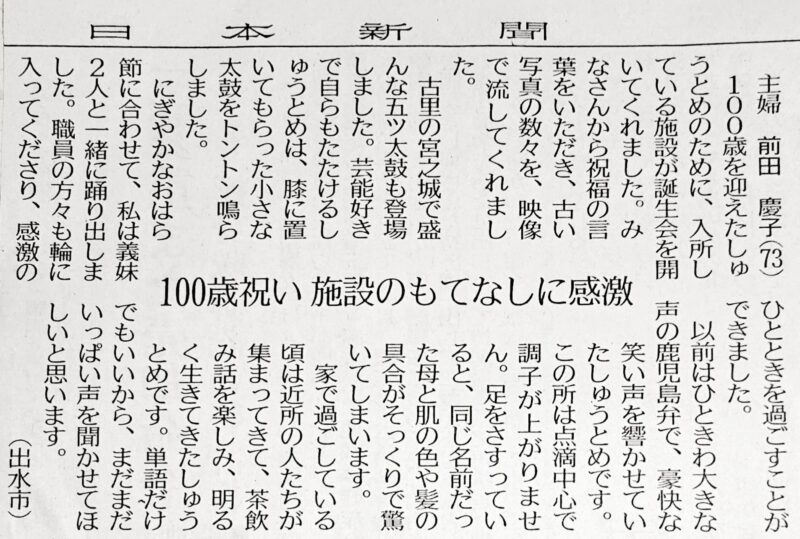 日本新聞
100歳祝い 施設のもてなしに感激
主婦 前田 慶子(73)
100歳を迎えたしゅ
うとめのために、入所し
ている施設が誕生会を開
いてくれました。み
なさんから祝福の言
葉をいただき、古い
写真の数々を、映像
で流してくれまし
た。
古里の宮之城で盛
んな五ツ太鼓も登場
しました。芸能好き
で自らもたたけるし
ゅうとめは、膝に置
いてもらった小さな
太鼓をトントン鳴ら
しました。
にぎやかなおはら
節に合わせて、私は義妹
2人と一緒に踊り出しま
した。職員の方々も輪に
入ってくださり、感激の
ひとときを過ごすことが
できました。
以前はひときわ大きな
声の鹿児島弁で、豪快な
笑い声を響かせてい
たしゅうとめです。
この所は点滴中心で
調子が上がりませ
ん。足をさすってい
ると、同じ名前だっ
た母と肌の色や髪の
具合がそっくりで驚
いてしまいます。
家で過ごしている
頃は近所の人たちが
集まってきて、茶飲
み話を楽しみ、明る
く生きてきたしゅう
とめです。単語だけ
でもいいから、まだまだ
いっぱい声を聞かせてほ
しいと思います。
(出水市)